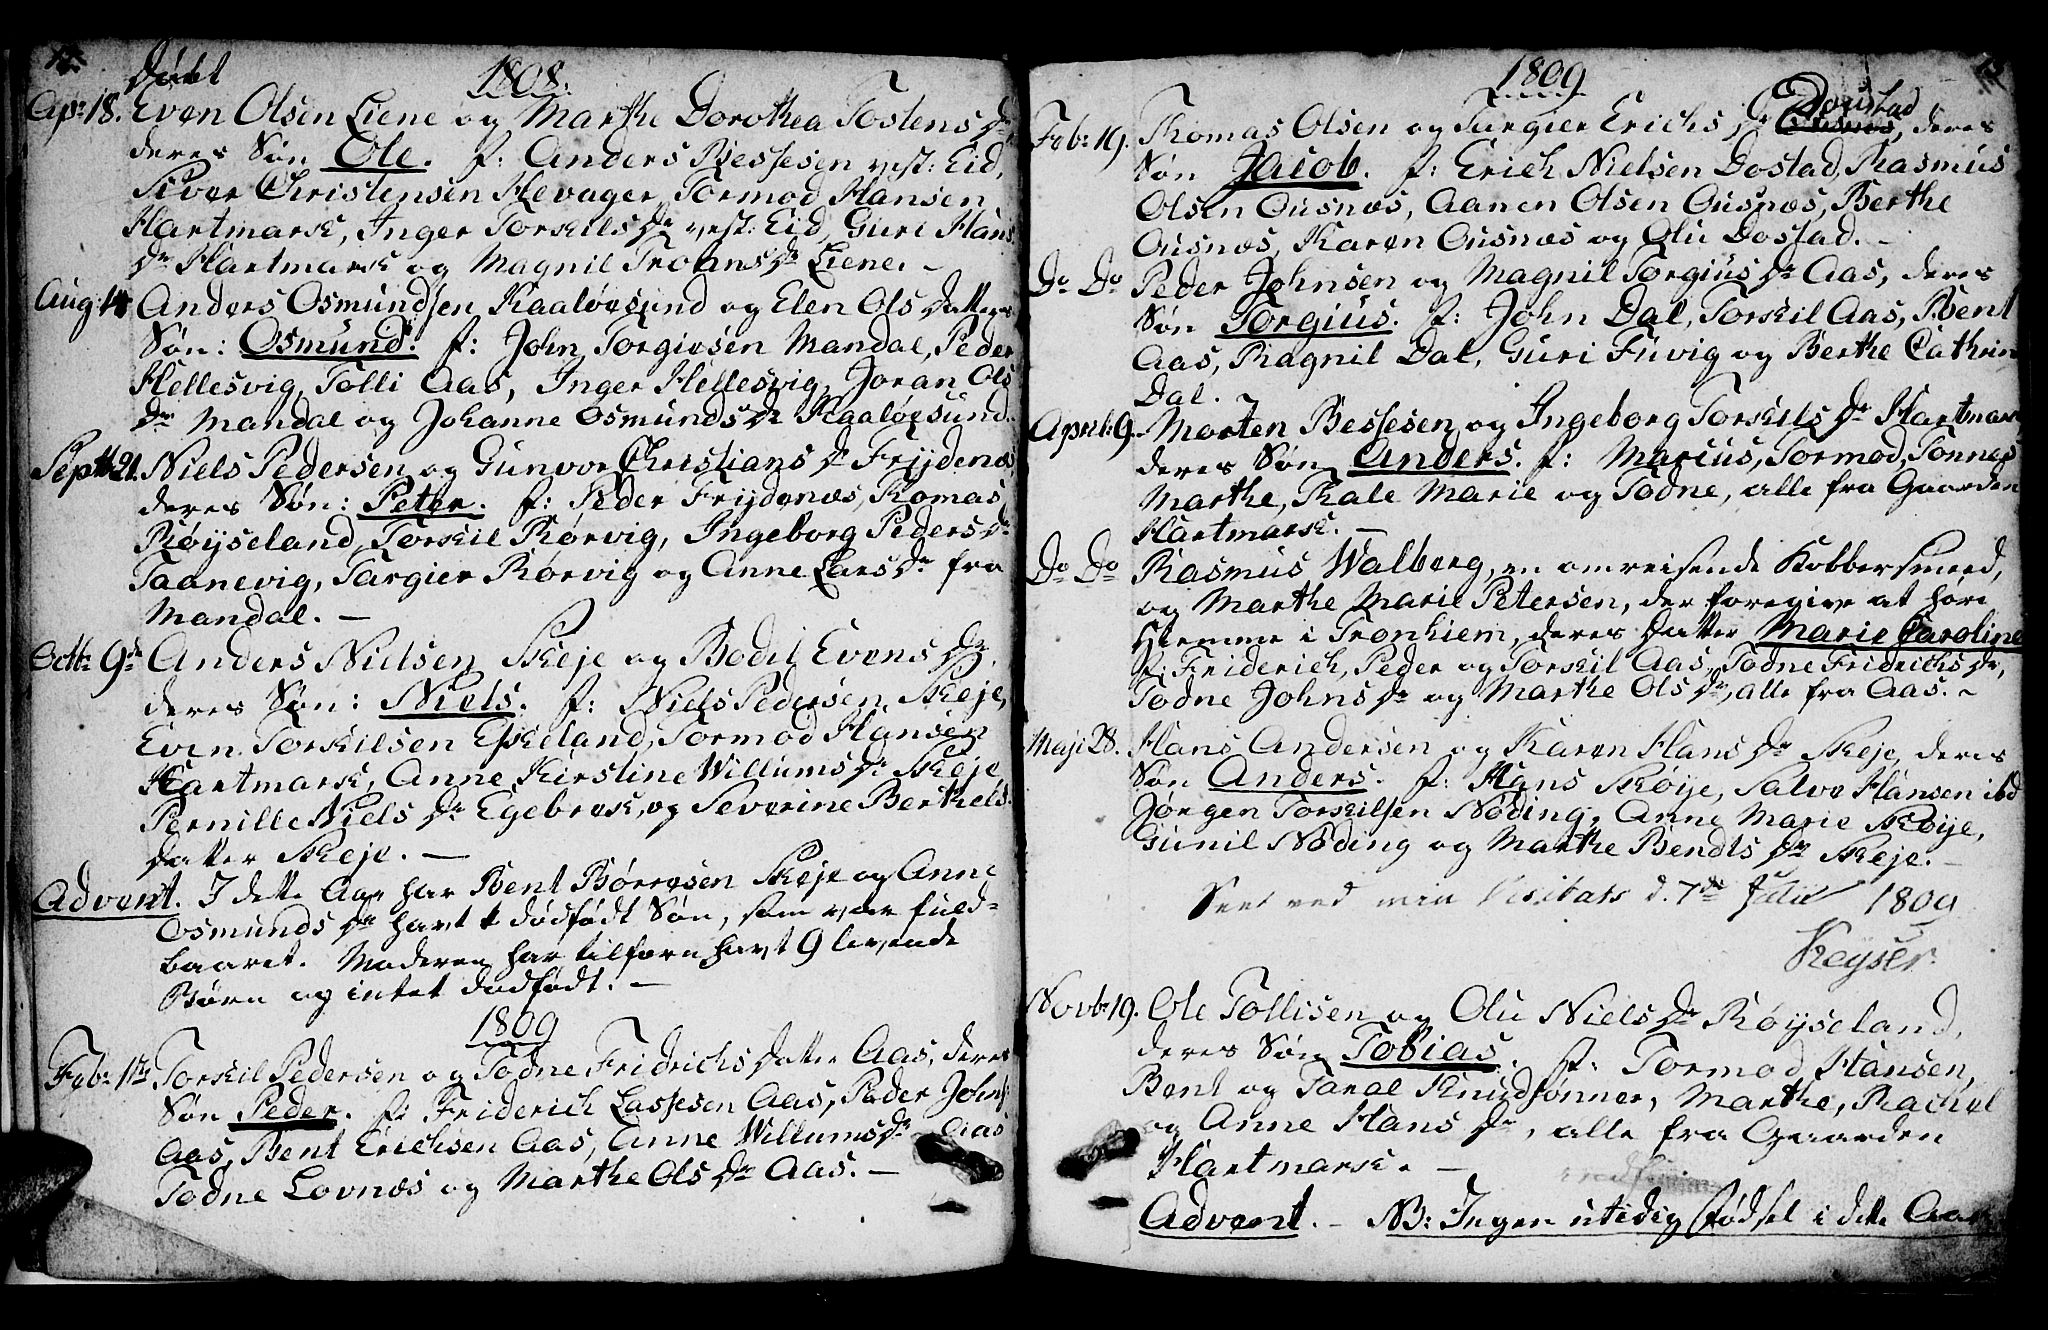 Døbt 1808.
Apr 18. Even Olsen Liene og Marthe Dorothea Tostens Dr
deres Søn Ole. f: Anders Bessesen vest: Eid,
Siver Christensen Hevager, Tormod Hansen
Hartmark, Inger Torkils Dr vest: Eid, Guri Hans
Dr Hartmark og Magnil Troans Dr Liene. –
Aug 14 Anders Osmundsen Kaaløesund og Elen Ols Datters
Søn: Osmund. f: John Torgiesen Mandal, Peder
Hellesvig, Tolli Aas, Inger Hellesvig, Joran Ols
Dr Mandal og Johanne Osmunds Dr Kaaløesund.
Septb 21. Niels Pedersen og Gunvor Christians Dr Frijdenæs,
deres Søn: Peter. f: Peder Frijdenæs, Romas
Røijseland, Torkil Rørvig, Ingeborg Peders Dr
Taanevig, Targier Rørvig og Anne Lars Dr fra
Mandal. –
Octbr 9de Anders Nielsen Skeje og Bodil Evens Dr,
deres Søn: Niels. f: Niels Pedersen Skeje,
Even Torkilsen Eskeland, Tormod Hansen
Hartmark, Anne Kirstine Willums Dr Skeje,
Pernille Niels Dr Egebrek, og Severine Berthels
Datter Skeje. –
Advent. I dette Aar har Bent Børresen Skeje og Anne
Osmunds Dr havt 1 dødfødt Søn, som var fuld-
baaret. Moderen har tilforn havt 9 levende
Børn og intet dødfødt. –
1809
Febr 12 Torkil Pedersen og Todne Fridrichs Datter Aas, deres
Søn Peder. f: Friderich Lassesen Aas, Peder Johns:
Aas, Bent Erichsen Aas, Anne Willums Dr Aas
Todne Lovnæs og Marthe Ols Dr Aas. –
1809
Febr 19. Thomas Olsen og Turgier Erichs Dr Doustad, deres
Søn Jacob. f: Erich Nielsen Dostad, Rasmus
Olsen Ousnæs, Aanen Olsen Ousnæs, Berthe
Ousnæs, Karen Ousnæs og Olu Dostad. –
Do Do Peder Johnsen og Magnil Torgius Dr Aas, deres
Søn Torgius. f: John Dal, Torkil Aas, Bent
Aas, Ragnil Dal, Guri Fuvig og Berthe Cathrin
Dal. –
April: 9. Morten Bessesen og Ingeborg Torkils Dr Hartmark
deres Søn Anders. f: Marcus, Tormod, Tønnes
Marthe, Kale Marie og Todne, alle fra Gaarden
Hartmark. –
Do Do Rasmus Walberg, en omreisende Kobbersmed,
og Marthe Marie Petersen, der foregive at høre
hiemme i Tronhiem, deres Datter Marie Caroline
f: Friderich, Peder og Torkil Aas, Todne Fridrichs Dr,
Todne Johns Dr og Marthe Ols Dr, alle fra Aas. –
Maji 28. Hans Andersen og Karen Hans Dr Skeje, deres
Søn Anders. f: Hans Skøije, Salve Hansen ibd
Jørgen Torkilsen Nøding, Anne Marie Skøije,
Gunil Nøding og Marthe Bendts Dr Skeje. –
Seet ved min Visitats d. 7de Julii 1809
Keyser.
Novbr 19. Ole Tollisen og Olu Niels Dr Røijseland,
deres Søn Tobias. f: Tormod Hansen,
Bent og Taral Knudsønner, Marthe, Rachel
og Anne Hans Dr, alle fra Gaarden
Hartmark. –
Advent. – NB: Ingen utidig fødsel i dette Aar